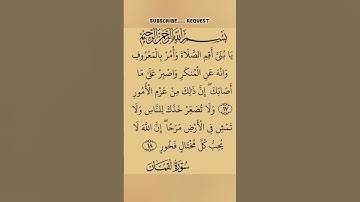 SUBSCRIBE.... REQUEST
بِسْمِ اللَّهِ الرَّحْمَٰنِ الرَّحِيمِ
يَا بُنَيَّ أَقِمِ الصَّلَاةَ وَأْمُرْ بِالْمَعْرُوفِ
وَانْهَ عَنِ الْمُنكَرِ وَاصْبِرْ عَلَىٰ مَا
أَصَابَكَ ۖ إِنَّ ذَٰلِكَ مِنْ عَزْمِ الْأُمُورِ
﴿١٧﴾ وَلَا تُصَعِّرْ خَدَّكَ لِلنَّاسِ وَلَا
تَمْشِ فِي الْأَرْضِ مَرَحًا ۖ إِنَّ اللَّهَ لَا
يُحِبُّ كُلَّ مُخْتَالٍ فَخُورٍ ﴿١٨﴾
سُورَةُ لُقْمَان